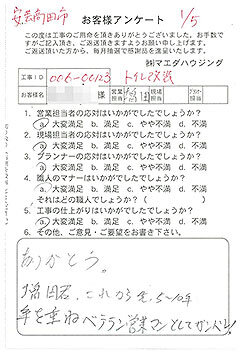 安芸高田市 1/5
お客様アンケート
この度は工事のご用命を頂きありがとうございました。お手数で
すがご記入頂き、ご返送頂きますようお願い申し上げます。
ご返送頂いた方から、毎月抽選で感謝品を進呈いたします。
㈱マエダハウジング
工事ID 006-0023 トイレ改装
お客様名 様 営業担当 現場担当
1. 営業担当者の応対はいかがでしたでしょうか？
a. 大変満足 b. 満足 c. やや不満 d. 不満
2. 現場担当者の応対はいかがでしたでしょうか？
a. 大変満足 b. 満足 c. やや不満 d. 不満
3. プランナーの応対はいかがでしたでしょうか？
a. 大変満足 b. 満足 c. やや不満 d. 不満
4. 職人のマナーはいかがでしたでしょうか？
a. 大変満足 b. 満足 c. やや不満 d. 不満
それはどの職人でしょうか？（
5. 工事の仕上がりはいかがでしたでしょうか？
a. 大変満足 b. 満足 c. やや不満 d. 不満
6. その他、ご意見・ご要望をお書き下さい。
ありがとう。
君、これから先、5~10年
年を重ねベテラン営業マンとしてガンバレ!